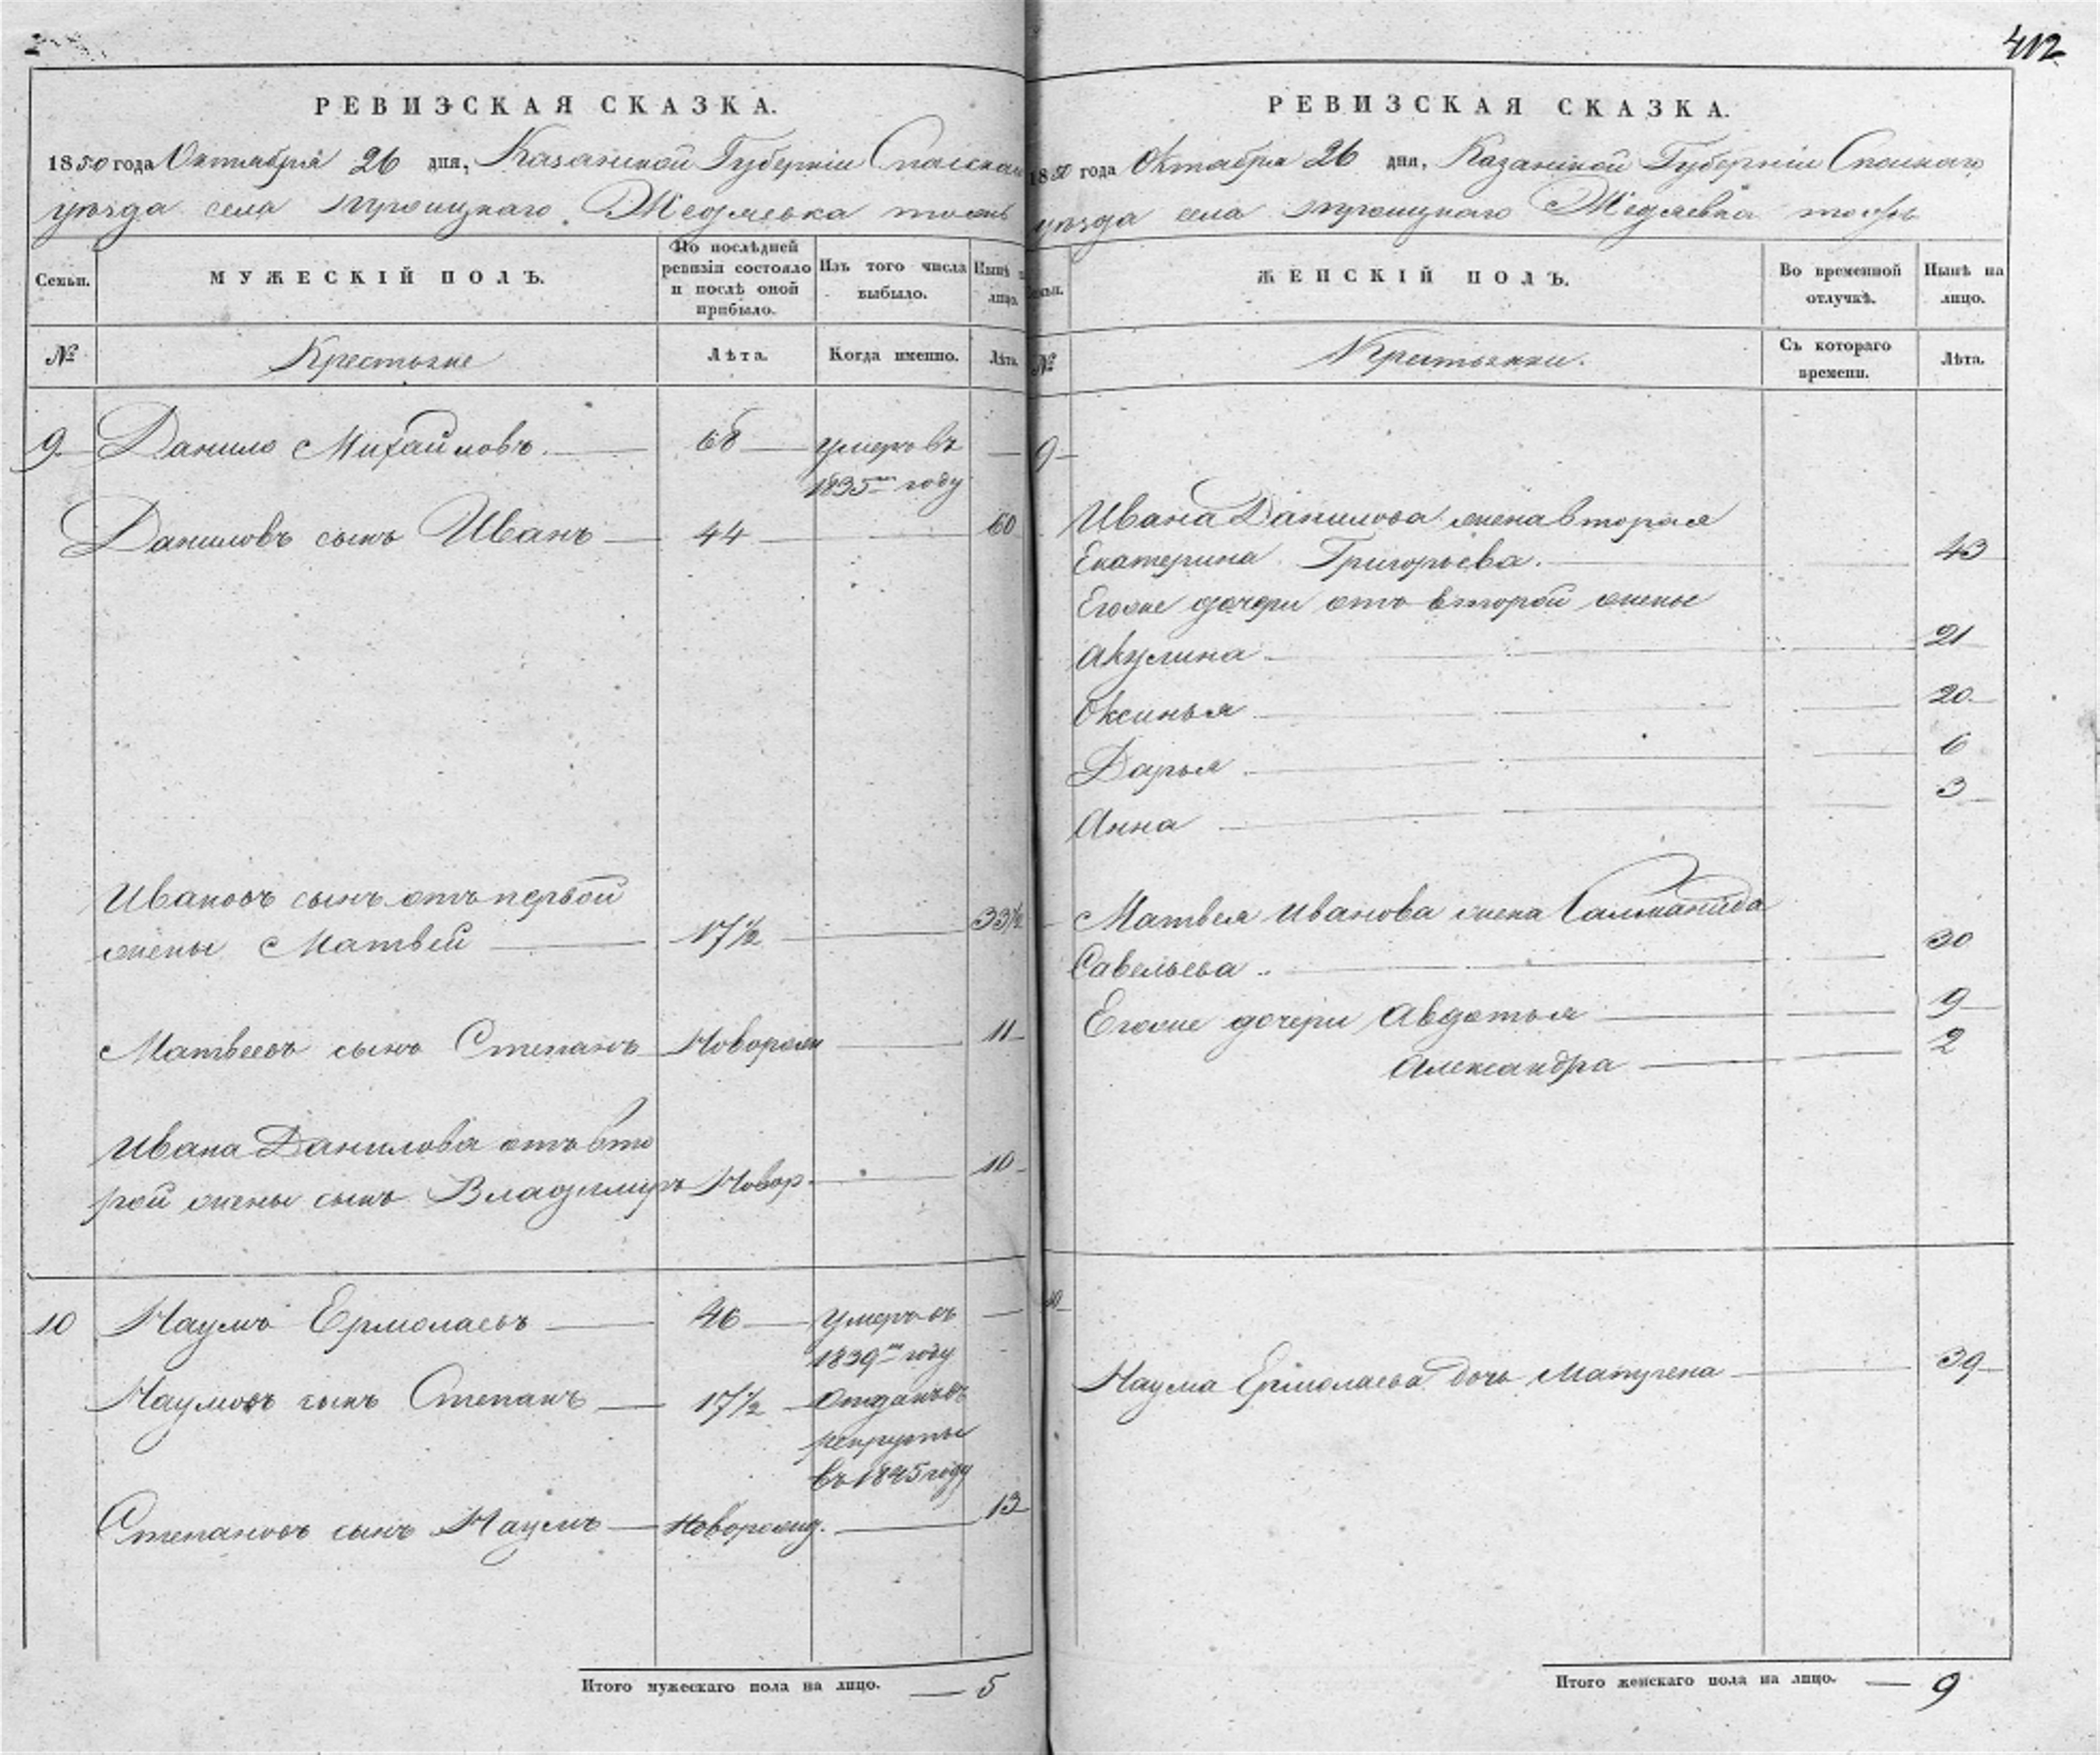 412
РЕВИЗСКАЯ СКАЗКА.
1850 года Октября 26 дня, Казанской Губернии Спаскаго
уѣзда села Троицкаго Жедяевка тожъ
Семьи.
МУЖЕСКІЙ ПОЛЪ.
По послѣдней ревизіи состояло и послѣ оной прибыло.
Изъ того числа выбыло.
Нынѣ на лицо.
№
Крестьяне
Лѣта.
Когда именно.
Лѣта.
9 Данило Михайловъ. 68 умеръ въ
1835мъ году
Даниловъ сынъ Иванъ 44 60
Ивановъ сынъ отъ первой
жены Матвей 17½ 33½
Матвеевъ сынъ Степанъ Новорож 11
Ивана Данилова отъ вто
рой жены сынъ Владимиръ Новор. 10
10 Наумъ Ермолаевъ 46 умеръ въ
1839мъ году
Наумовъ сынъ Степанъ 17½ Отданъ въ
рекруты
въ 1845 году
Степановъ сынъ Наумъ Новорожд. 13
Итого мужескаго пола на лицо. 5
РЕВИЗСКАЯ СКАЗКА.
1850 года Октября 26 дня, Казанской Губернии Спаскаго
уѣзда села Троицкаго Жедяевка тожъ
Семьи.
ЖЕНСКІЙ ПОЛЪ.
Во временной отлучкѣ.
Нынѣ на лицо.
№
Крестьянки.
Съ котораго времени.
Лѣта.
9
Ивана Данилова жена вторая
Екатерина Григорьева. 43
Егоже дочери отъ второй жены
Акулина 21
Оксинья 20
Дарья 6
Анна 3
Матвея Иванова жена
Савельева 30
Егоже дочери Авдотья 9
Александра 2
10
Наума Ермолаева дочь Матрена 39
Итого женскаго пола на лицо. 9